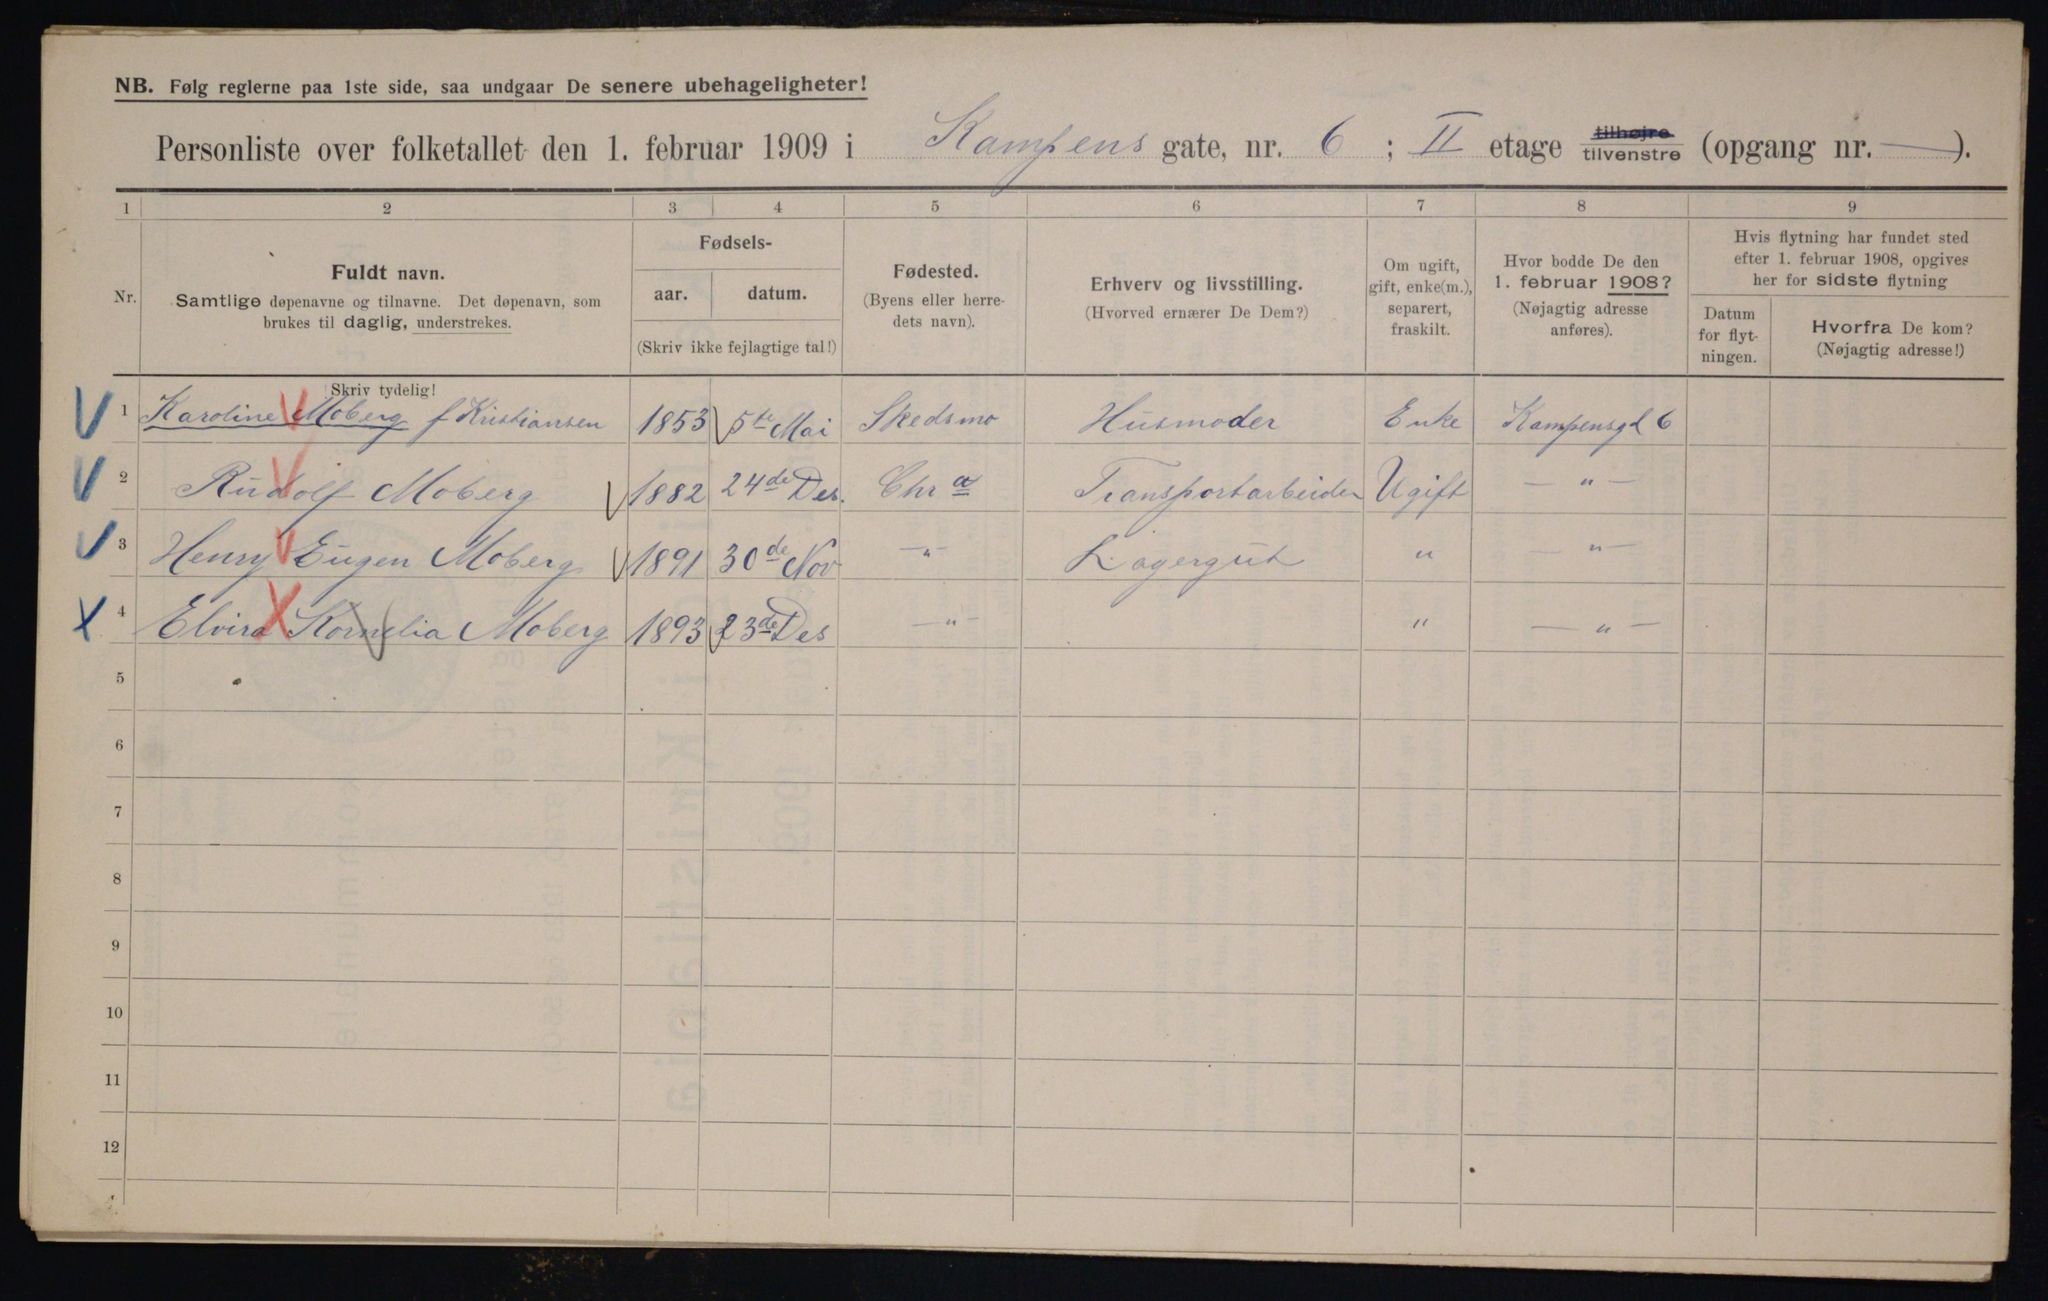 NB. Følg reglerne paa 1ste side, saa undgaar De senere ubehageligheter!
Personliste over folketallet den 1. februar 1909 i Kampens gate, nr. 6 ; II etage tilhøjre tilvenstre (opgang nr. — ).
1 2 3 4 5 6 7 8 9
Nr.
Fuldt navn.
Samtlige døpenavne og tilnavne. Det døpenavn, som
brukes til daglig, understrekes.
Fødsels-
aar. datum.
(Skriv ikke fejlagtige tal!)
Fødested.
(Byens eller herre-
dets navn).
Erhverv og livsstilling.
(Hvorved ernærer De Dem?)
Om ugift,
gift, enke(m.),
separert,
fraskilt.
Hvor bodde De den
1. februar 1908?
(Nøjagtig adresse
anføres).
Hvis flytning har fundet sted
efter 1. februar 1908, opgives
her for sidste flytning
Datum
for flyt-
ningen.
Hvorfra De kom?
(Nøjagtig adresse!)
Skriv tydelig!
1 Karoline Moberg f Kristiansen 1853 5te Mai Skedsmo Husmoder Enke Kampensgd 6
2 Rudolf Moberg 1882 24de Des. Chr a Transportarbeider Ugift — " —
3 Henry Eugen Moberg 1891 30de Nov — " — Lagergut " — " —
4 Elvira Kornelia Moberg 1893 23de Des — " — " — " —
5
6
7
8
9
10
11
12